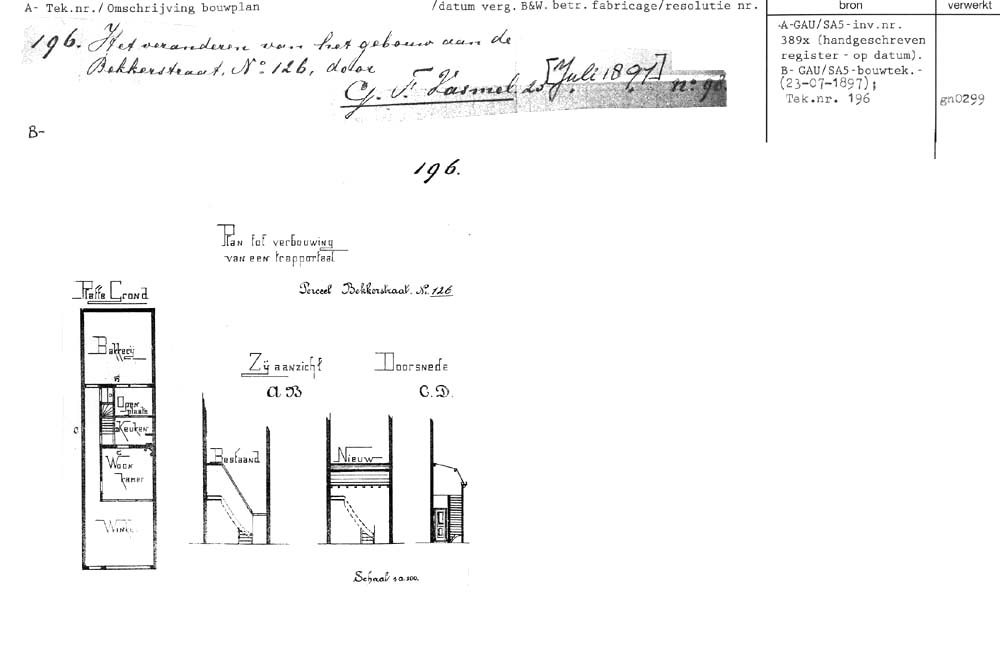 A- Tek.nr./ Omschrijving bouwplan /datum verg. B&W. betr. fabricage/resolutie nr. bron verwerkt
196. Het veranderen van het gebouw aan de
Bekkerstraat, No. 126, door
G. F. Kasmel 23 [Juli 1897] no. 98.
A-GAU/SA5-inv.nr.
389x (handgeschreven
register - op datum).
B- GAU/SA5-bouwtek.-
(23-07-1897);
Tek.nr. 196
gn0299
B-
196.
Plan tot verbouwing
van een trapportaal
Perceel Bekkerstraat. No. 126
Platte Grond
Bakkerij
B
Open
plaats
Keuken
C
Woon
kamer
Winkel
Zij aanzicht
A B
Doorsnede
C. D.
Bestaand
Nieuw
Schaal 1 a 100.